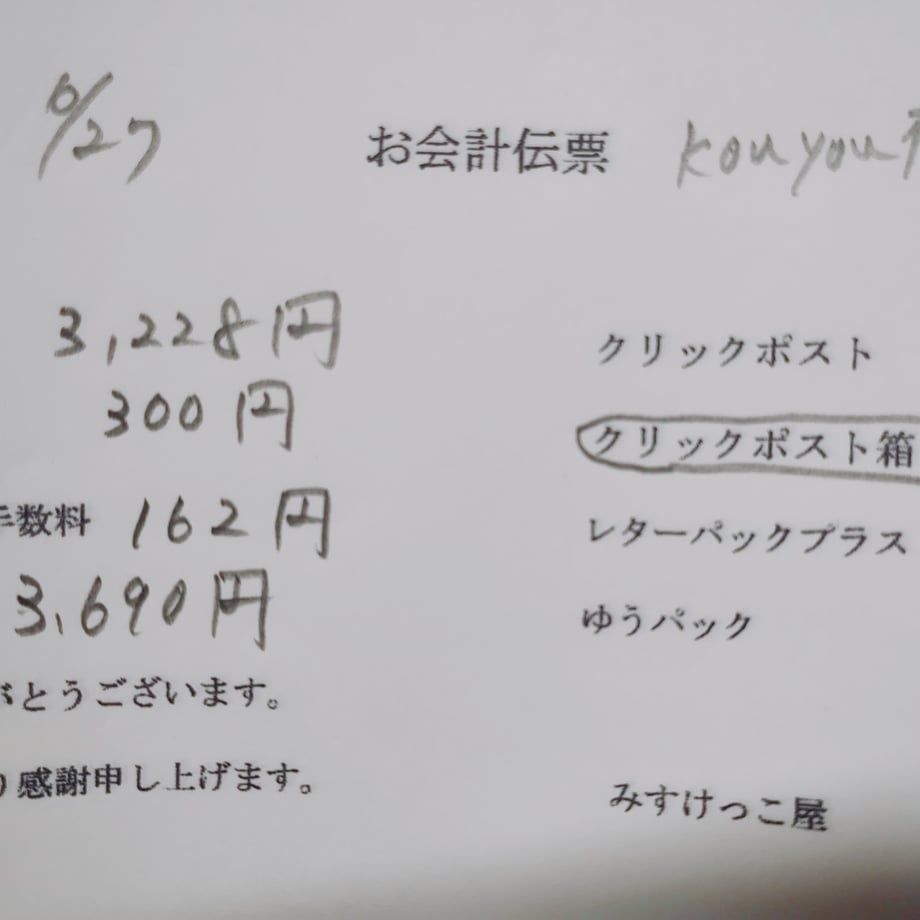 6/27
お会計伝票
kouyou
3,228円
300円
手数料 162円
3,690円
がとうございます。
り感謝申し上げます。
クリックポスト
クリックポスト箱
レターパックプラス
ゆうパック
みすけっこ屋